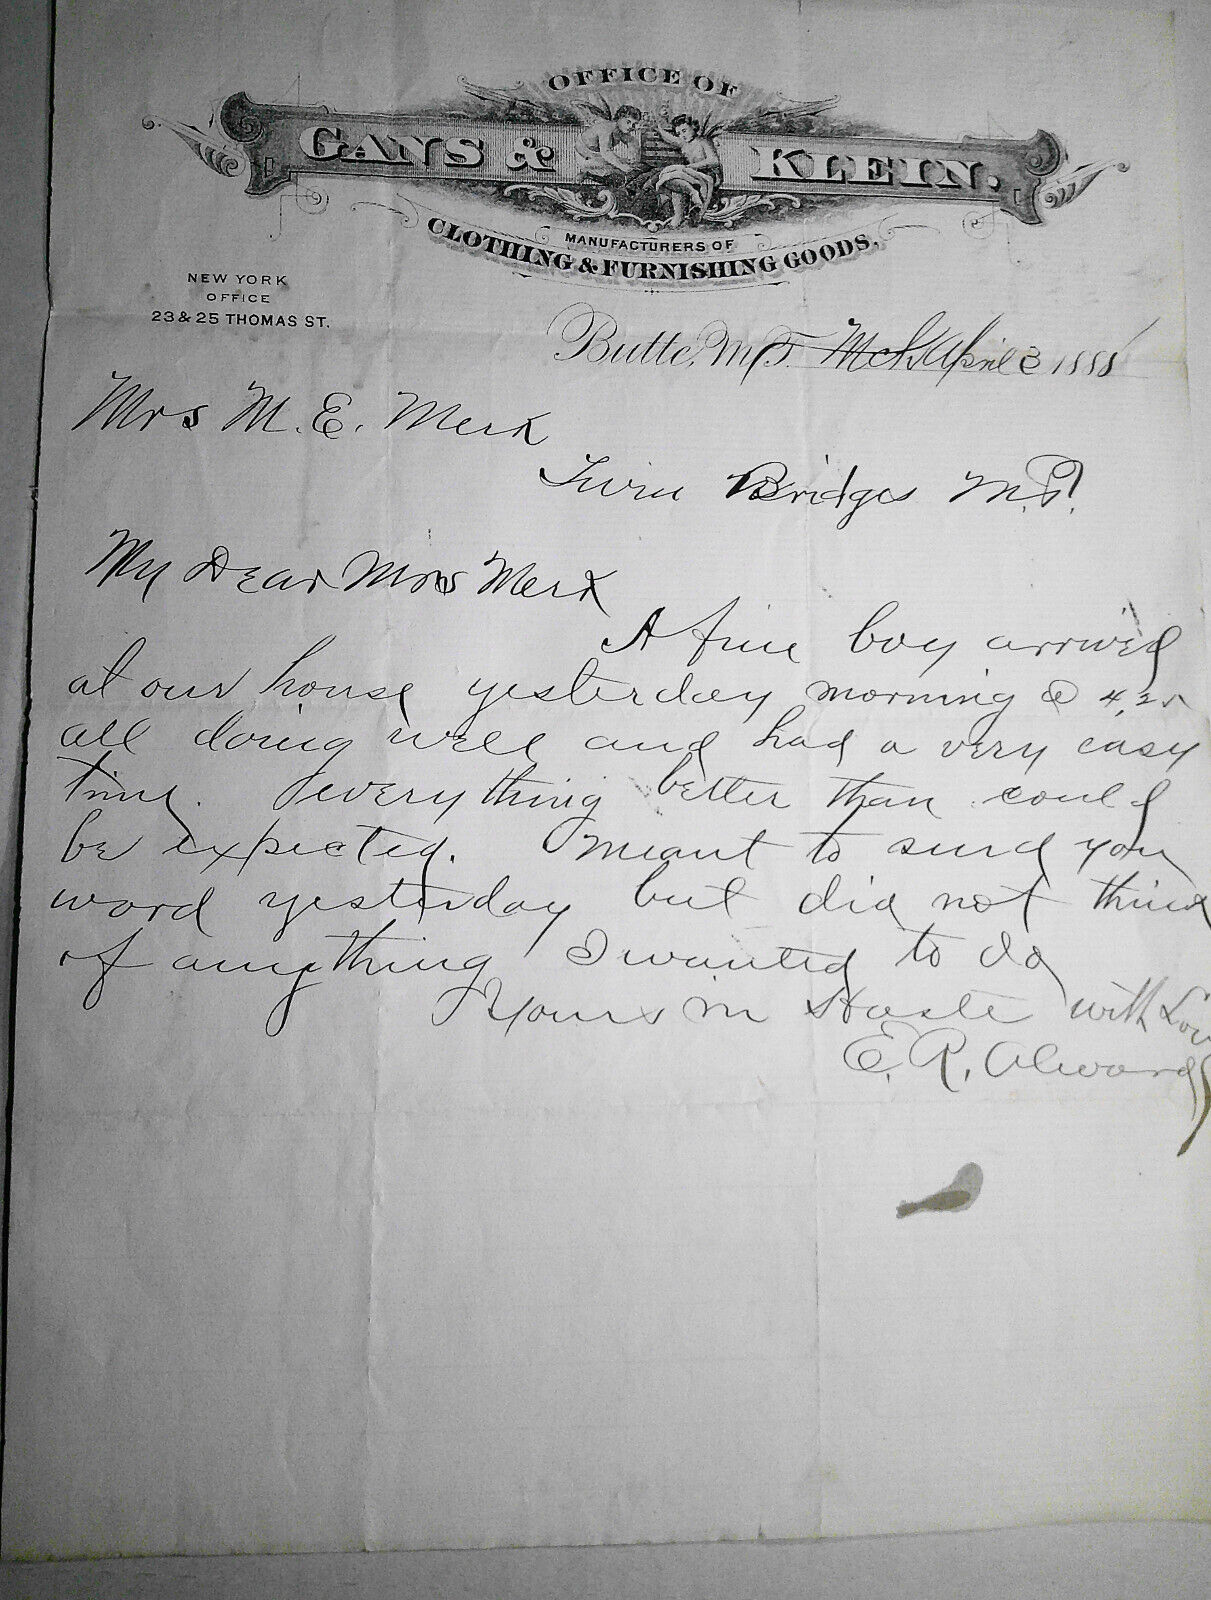 OFFICE OF
GANS & KLEIN.
MANUFACTURERS OF
CLOTHING & FURNISHING GOODS.
NEW YORK
OFFICE
23 & 25 THOMAS ST.
Butte, M.T. Mch April 3 1888
Mrs M. E. Merk
Twin Bridges M.T.
My Dear Mrs Merk
A fine boy arrived
at our house yesterday morning @ 4,25
all doing well and had a very easy
time. everything better than could
be expected. Meant to send you
word yesterday but did not think
of anything I wanted to do
Yours in Haste with Love
E. R. Alward